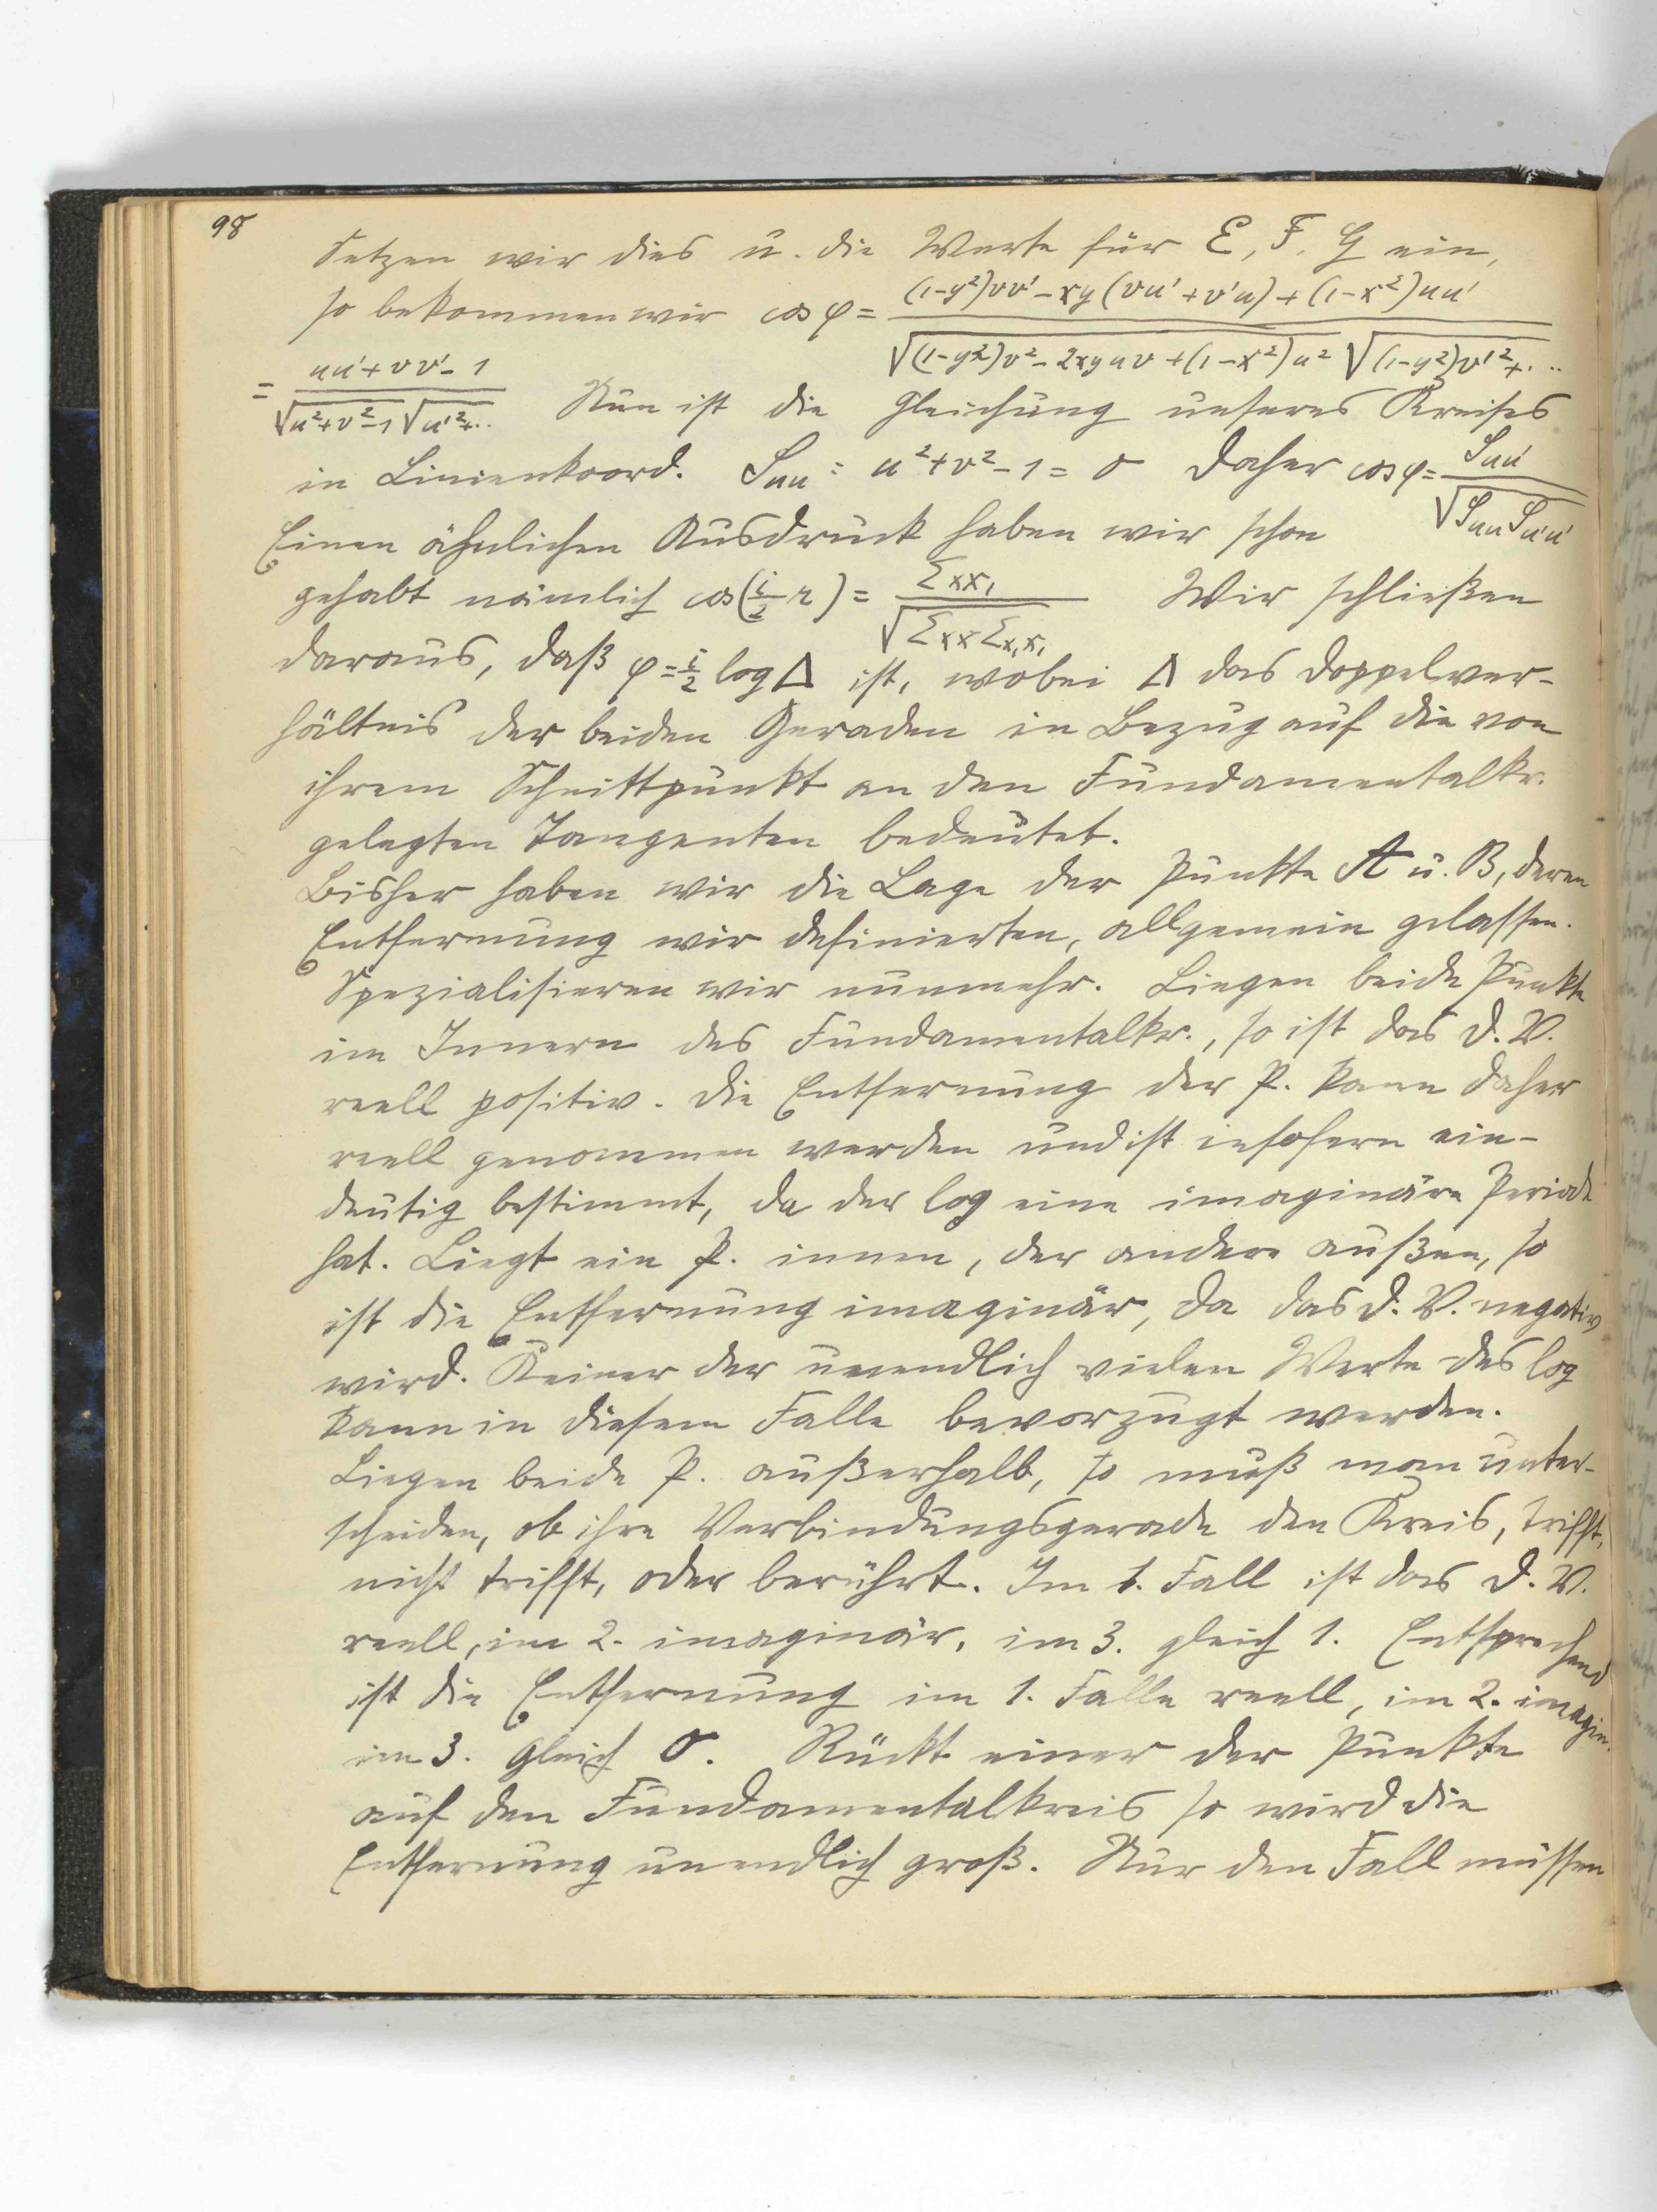 98
Setzen wir dies u. die Werte für E, F, G ein,
so bekommen wir cos φ = ((1-y²)vv' - xy(vu' + v'u) + (1-x²)uu') / (√((1-y²)v² - 2xyuv + (1-x²)u²) √((1-y²)v'² + ...))
= (uu' + vv' - 1) / (√(u²+v²-1) √(u'²+...)) Nun ist die Gleichung unseres Kreises
in Linienkoord. S_uu : u²+v²-1 = 0 Daher cos φ = S_uu' / √(S_uu S_u'u')
Einen ähnlichen Ausdruck haben wir schon
gehabt nämlich cos(i/2 r) = Σxx₁ / √(Σxx Σx₁x₁) Wir schließen
daraus, daß φ = i/2 log Δ ist, wobei Δ das Doppelver-
hältnis der beiden Geraden in Bezug auf die von
ihrem Schnittpunkt an den Fundamentalkr.
gelegten Tangenten bedeutet.
Bisher haben wir die Lage der Punkte A u. B, deren
Entfernung wir definierten, allgemein gelassen.
Spezialisieren wir nunmehr. Liegen beide Punkte
im Innern des Fundamentalkr., so ist das D.V.
reell positiv. Die Entfernung der P. kann daher
reell genommen werden und ist insofern ein-
deutig bestimmt, da der log eine imaginäre Periode
hat. Liegt ein P. innen, der andere außen, so
ist die Entfernung imaginär, da das D.V. negativ
wird. Keiner der unendlich vielen Werte des log
kann in diesem Falle bevorzugt werden.
Liegen beide P. außerhalb, so muß man unter-
scheiden, ob ihre Verbindungsgerade den Kreis, trifft,
nicht trifft, oder berührt. Im 1. Fall ist das D.V.
reell, im 2. imaginär, im 3. gleich 1. Entsprechend
ist die Entfernung im 1. Falle reell, im 2. imagin.
im 3. gleich 0. Rückt einer der Punkte
auf den Fundamentalkreis so wird die
Entfernung unendlich groß. Nur den Fall müssen